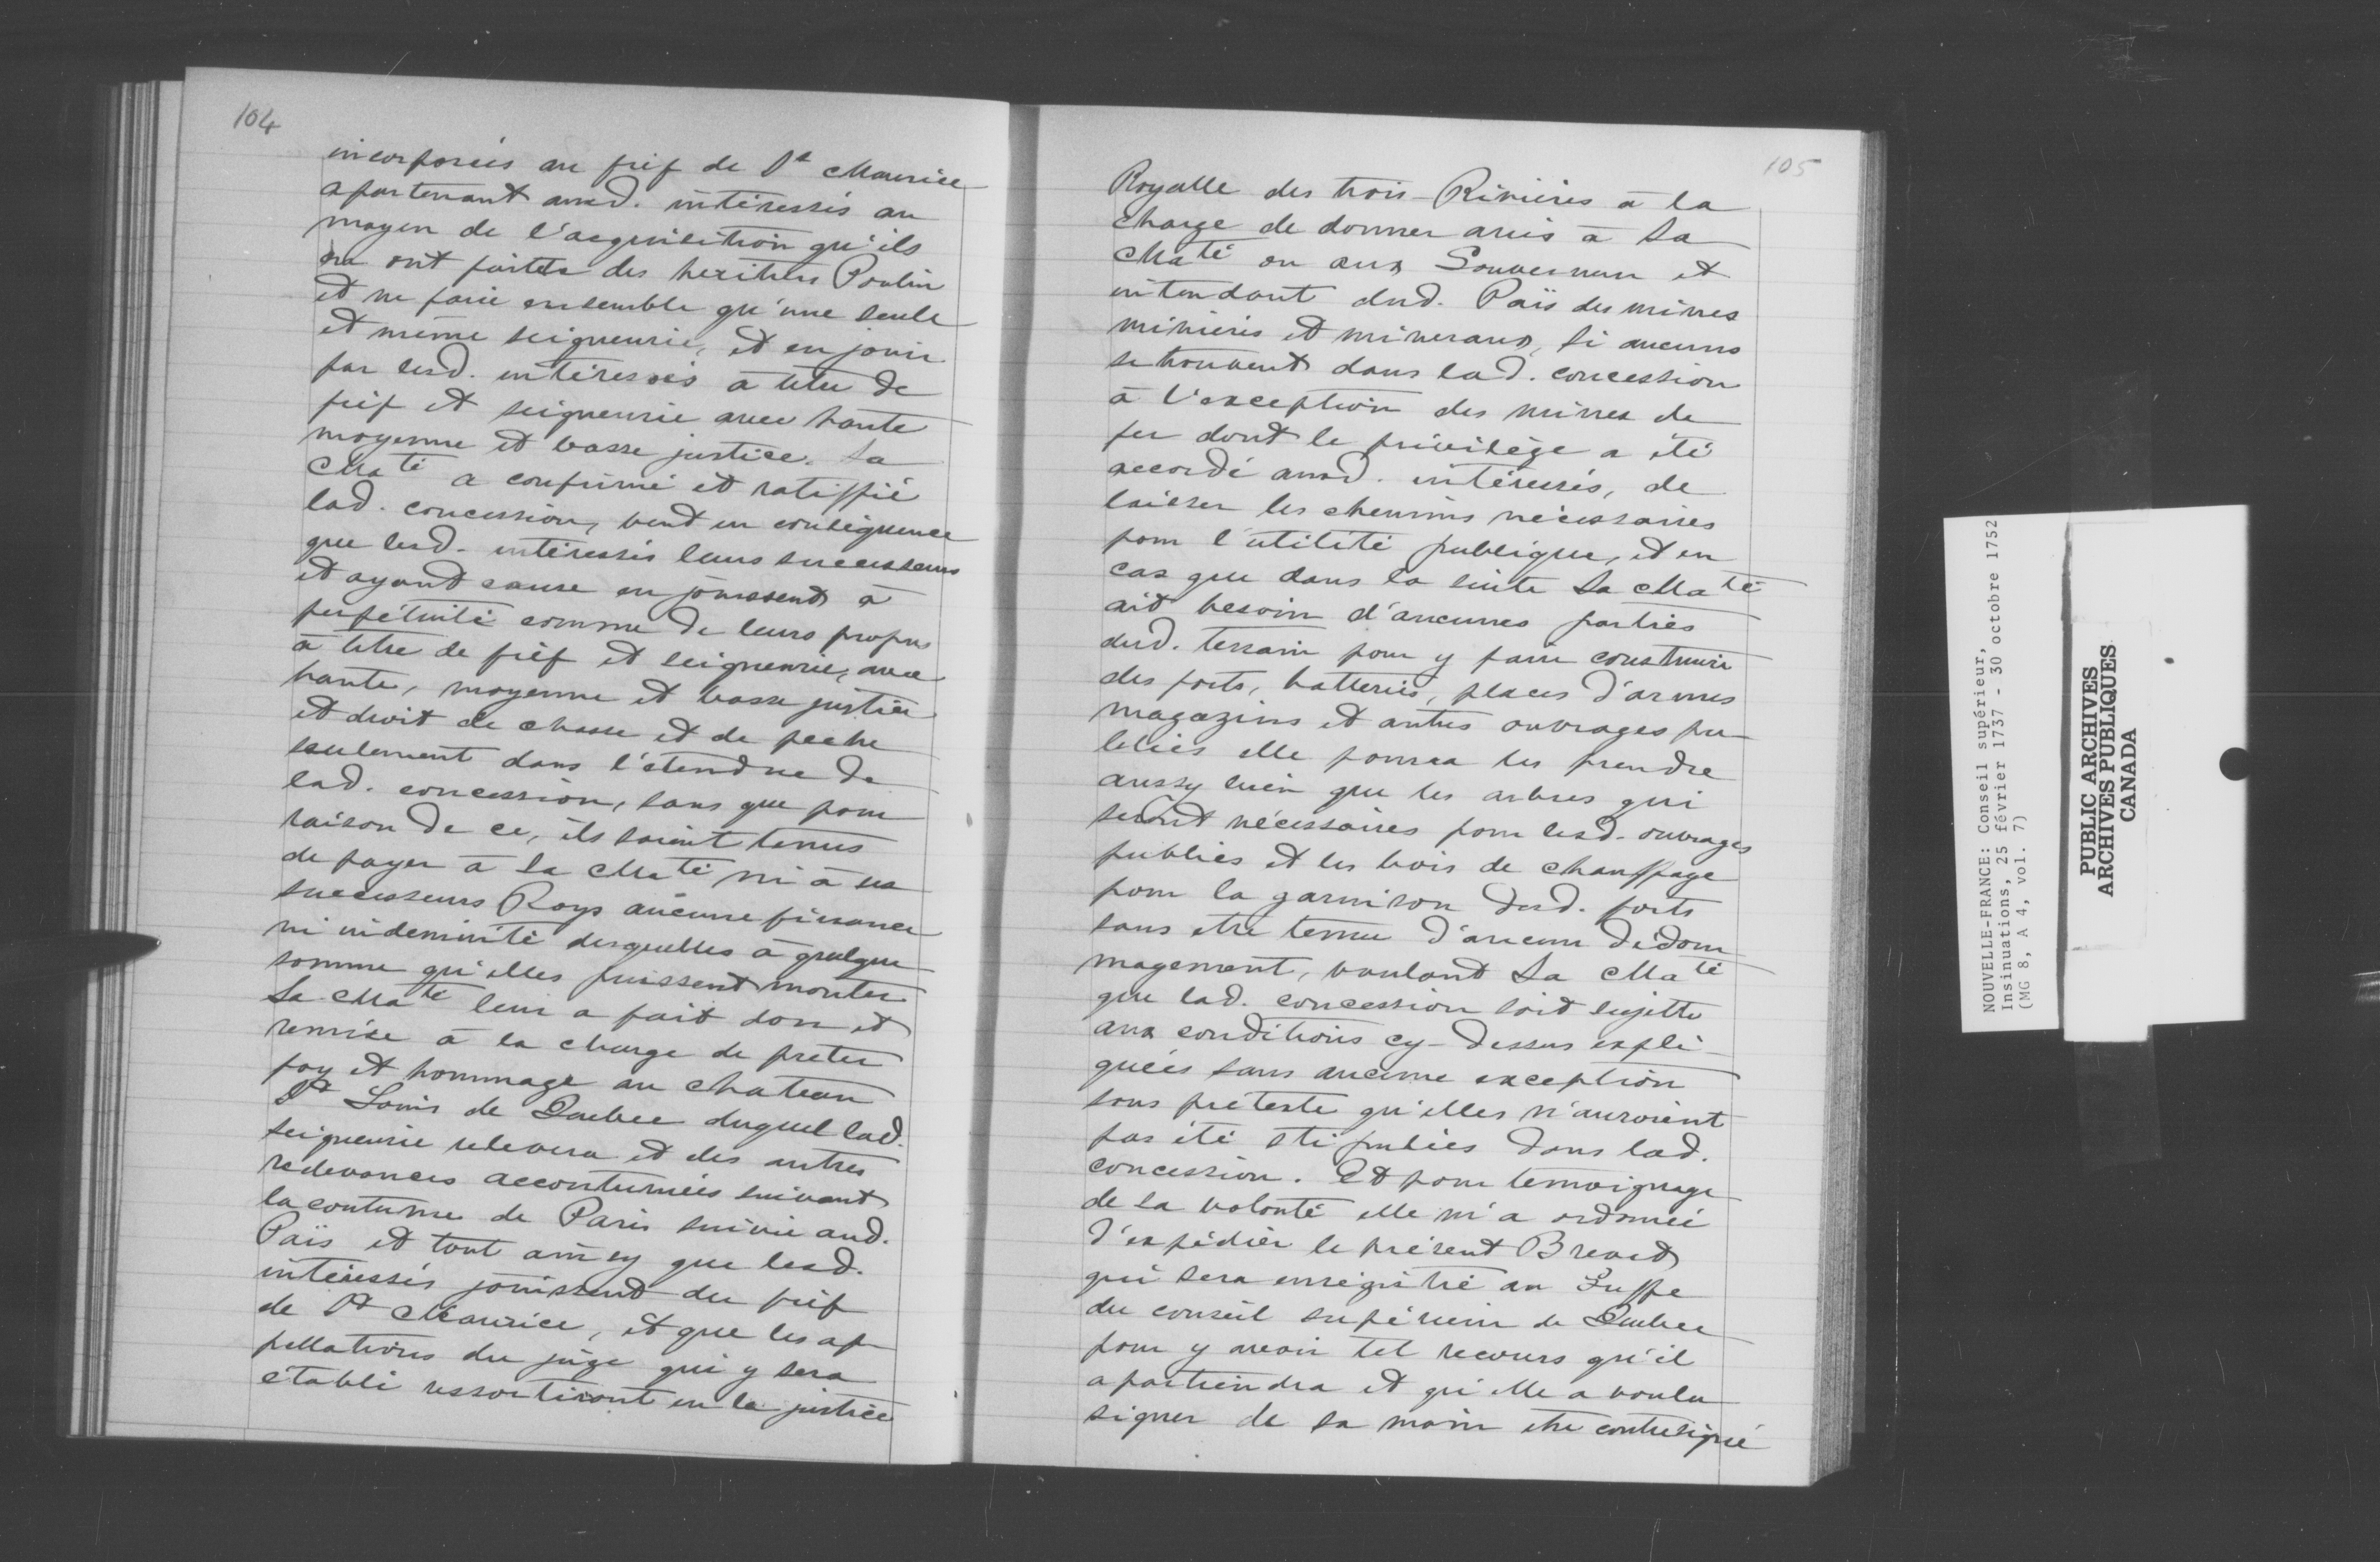 104
incorporées au fief de St Maurice
apartenant auxd. intéressés au
moyen de l'acquisition qu'ils
en ont faittes des heritiers Poulin
et ne faire ensemble qu'une seule
et même seigneurie, et en jouir
par lesd. intéressés à titre de
fief et seigneurie avec haute
moyenne et basse justice. Sa
Maté a confirmé et ratiffié
lad. concession, veut en conséquence
que lesd. intéressés leurs successeurs
et ayant cause en jouissent à
perpétuité comme de leurs propres
à titre de fief et seigneurie, avec
haute, moyenne et basse justice
et droit de chasse et de peche
seulement dans l'étendue de
lad. concession, sans que pour
raison de ce, ils soient tenus
de payer à Sa Maté ni à ses
successeurs Roys aucune finance
ni indemnité desquelles à quelque
somme qu'elles puissent monter
Sa Maté leur a fait don et
remise à la charge de preter
foy et hommage au chateau
St Louis de Quebec duquel lad.
seigneurie relevera et des autres
redevances accoutumées suivant
la coutume de Paris suivie aud.
Païs et tout ainsy que lesd.
intéressés jouissent du fief
de St Maurice, et que les ap-
pellations du juge qui y sera
établi ressortiront en la justice
105
Royalle des trois-Rivières à la
charge de donner avis à Sa
Maté ou aux Gouverneur et
intendant dud. Païs des mines
minières et mineraux, si aucuns
se trouvent dans lad. concession
à l'exception des mines de
fer dont le privilège a été
accordé auxd. intéressés, de
laisser les chemins nécessaires
pour l'utilité publique, et en
cas que dans la suite Sa Maté
ait besoin d'aucunes parties
dud. terrain pour y faire construire
des forts, batteries, places d'armes
magazins et autres ouvrages pu-
blics elle pourra les prendre
aussy bien que les arbres qui
seront nécessaires pour lesd. ouvrages
publics et les bois de chauffage
pour la garnison desd. forts
sans etre tenue d'aucun dédom
magement, voulant Sa Maté
que lad. concession soit sujette
aux conditions cy-dessus expli-
quées sans aucune exception
sous pretexte qu'elles n'auroient
pas été stipulées dans lad.
concession. Et pour temoignage
de sa volonté elle m'a ordonné
d'expédier le présent Brevet
qui sera enregistré au Greffe
du conseil supérieur de Quebec
pour y avoir tel recours qu'il
apartiendra et qu'elle a voulu
signer de sa main etre contresigné
NOUVELLE-FRANCE: Conseil supérieur,
Insinuations, 25 février 1737 - 30 octobre 1752
(MG 8, A 4, vol. 7)
PUBLIC ARCHIVES
ARCHIVES PUBLIQUES
CANADA